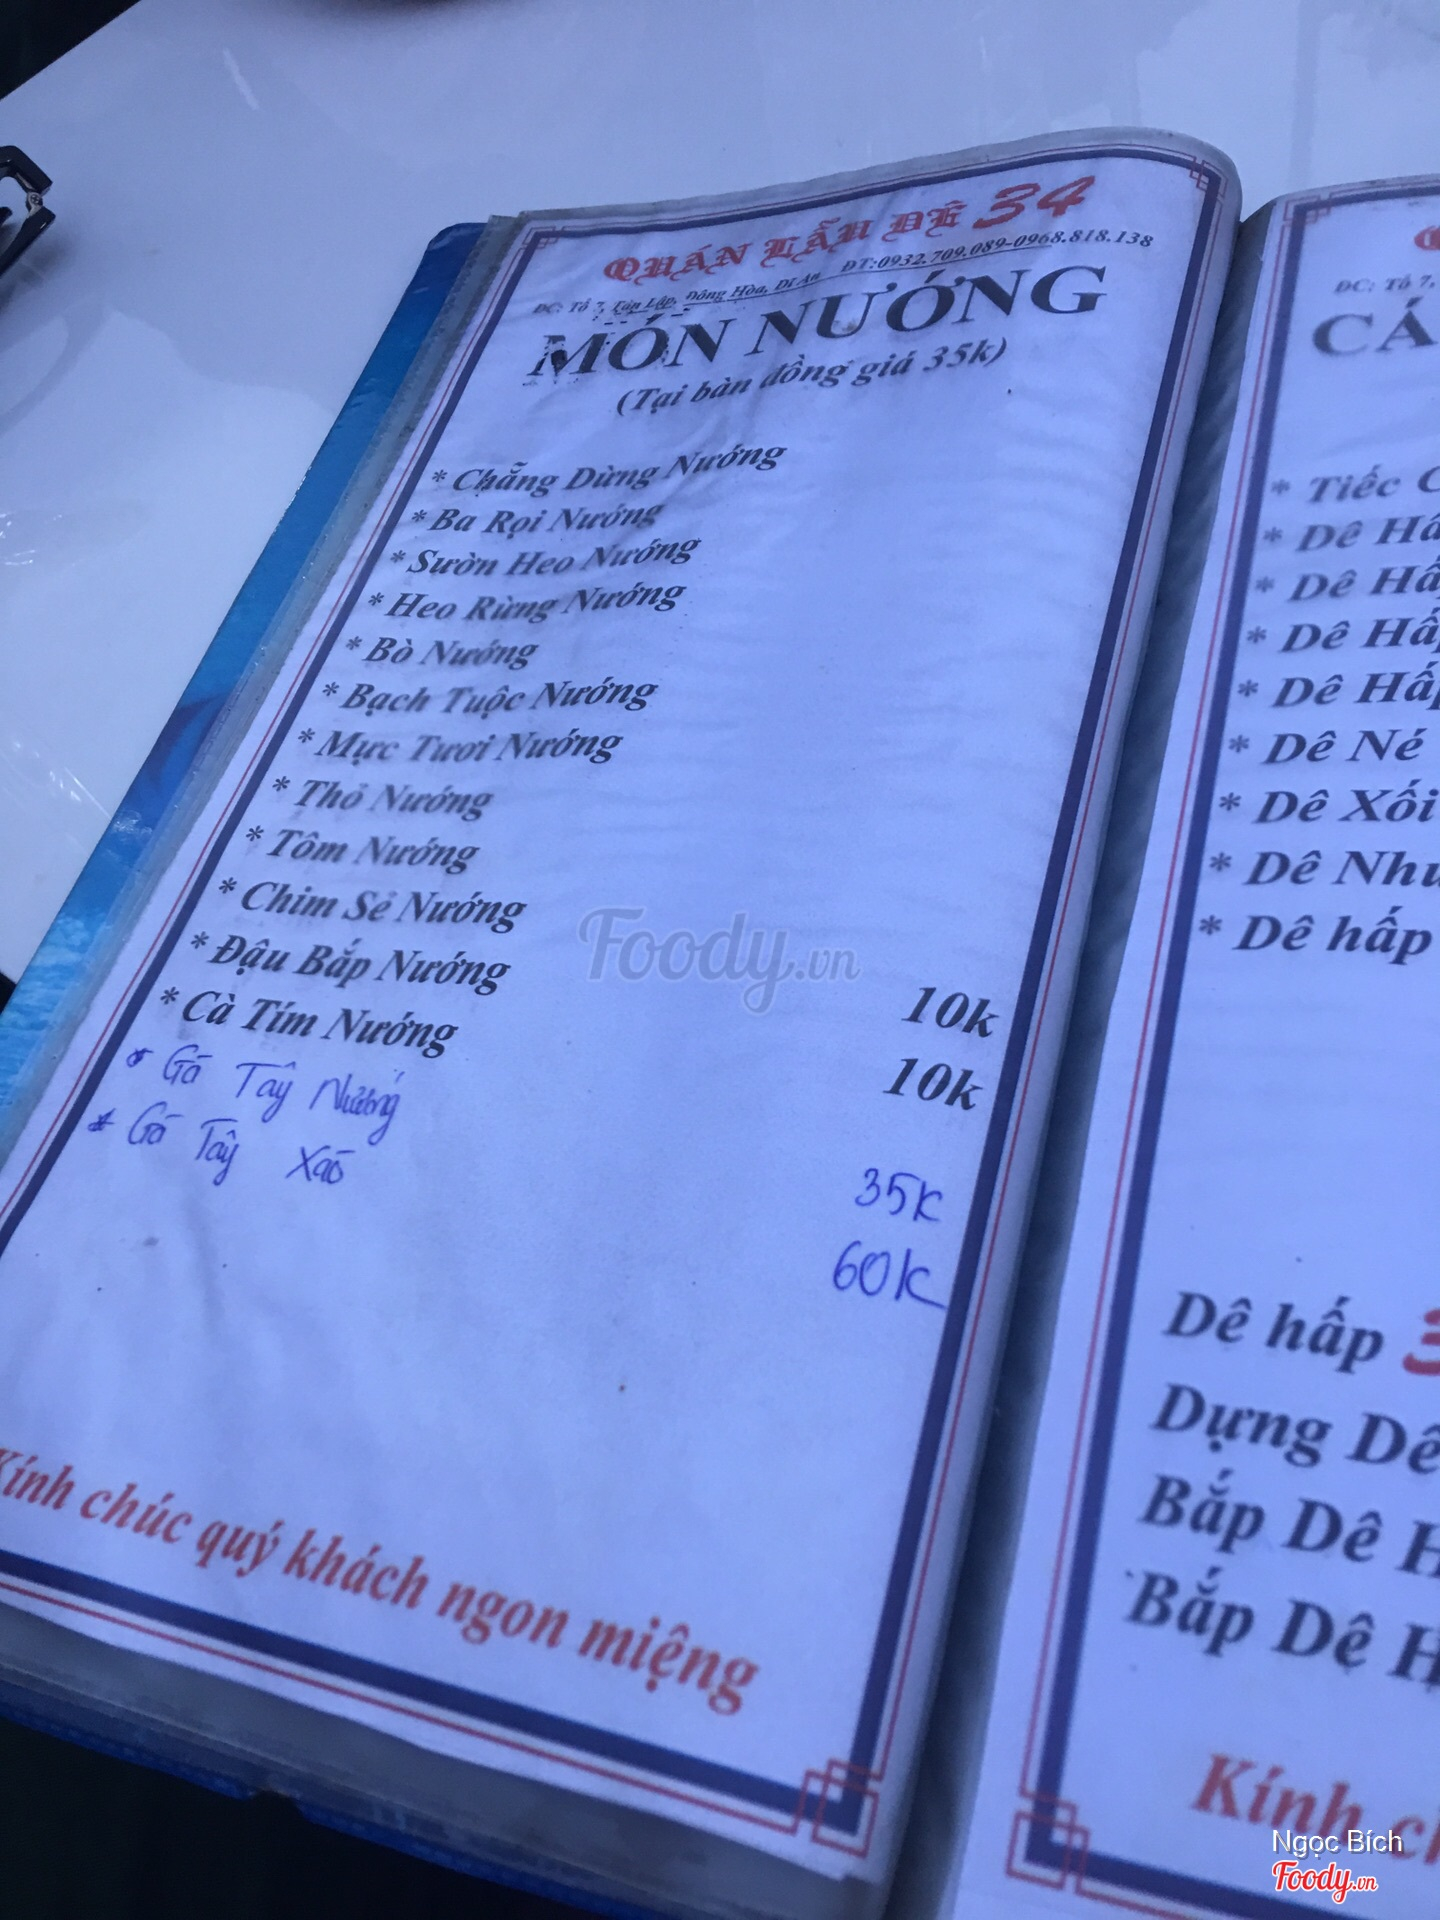 QUÁN LẨU DÊ 34
ĐC: Tổ 7, Tân Lập, Đông Hòa, Dĩ An ĐT:0932.709.089-0968.818.138
MÓN NƯỚNG
(Tại bàn đồng giá 35k)
* Chẳng Dừng Nướng
* Ba Rọi Nướng
* Sườn Heo Nướng
* Heo Rừng Nướng
* Bò Nướng
* Bạch Tuộc Nướng
* Mực Tươi Nướng
* Thỏ Nướng
* Tôm Nướng
* Chim Sẻ Nướng
* Đậu Bắp Nướng 10k
* Cà Tím Nướng 10k
* Gà Tây Nướng 35k
* Gà Tây Xào 60k
Kính chúc quý khách ngon miệng
ĐC: Tổ 7,
CÁ
* Tiếc
* Dê
* Dê
* Dê
* Dê
* Dê Né
* Dê Xối
* Dê
* Dê hấp
Dê hấp
Dựng Dê
Bắp Dê
Bắp Dê
Kính
Foody.vn
Ngọc Bích
Foody.vn